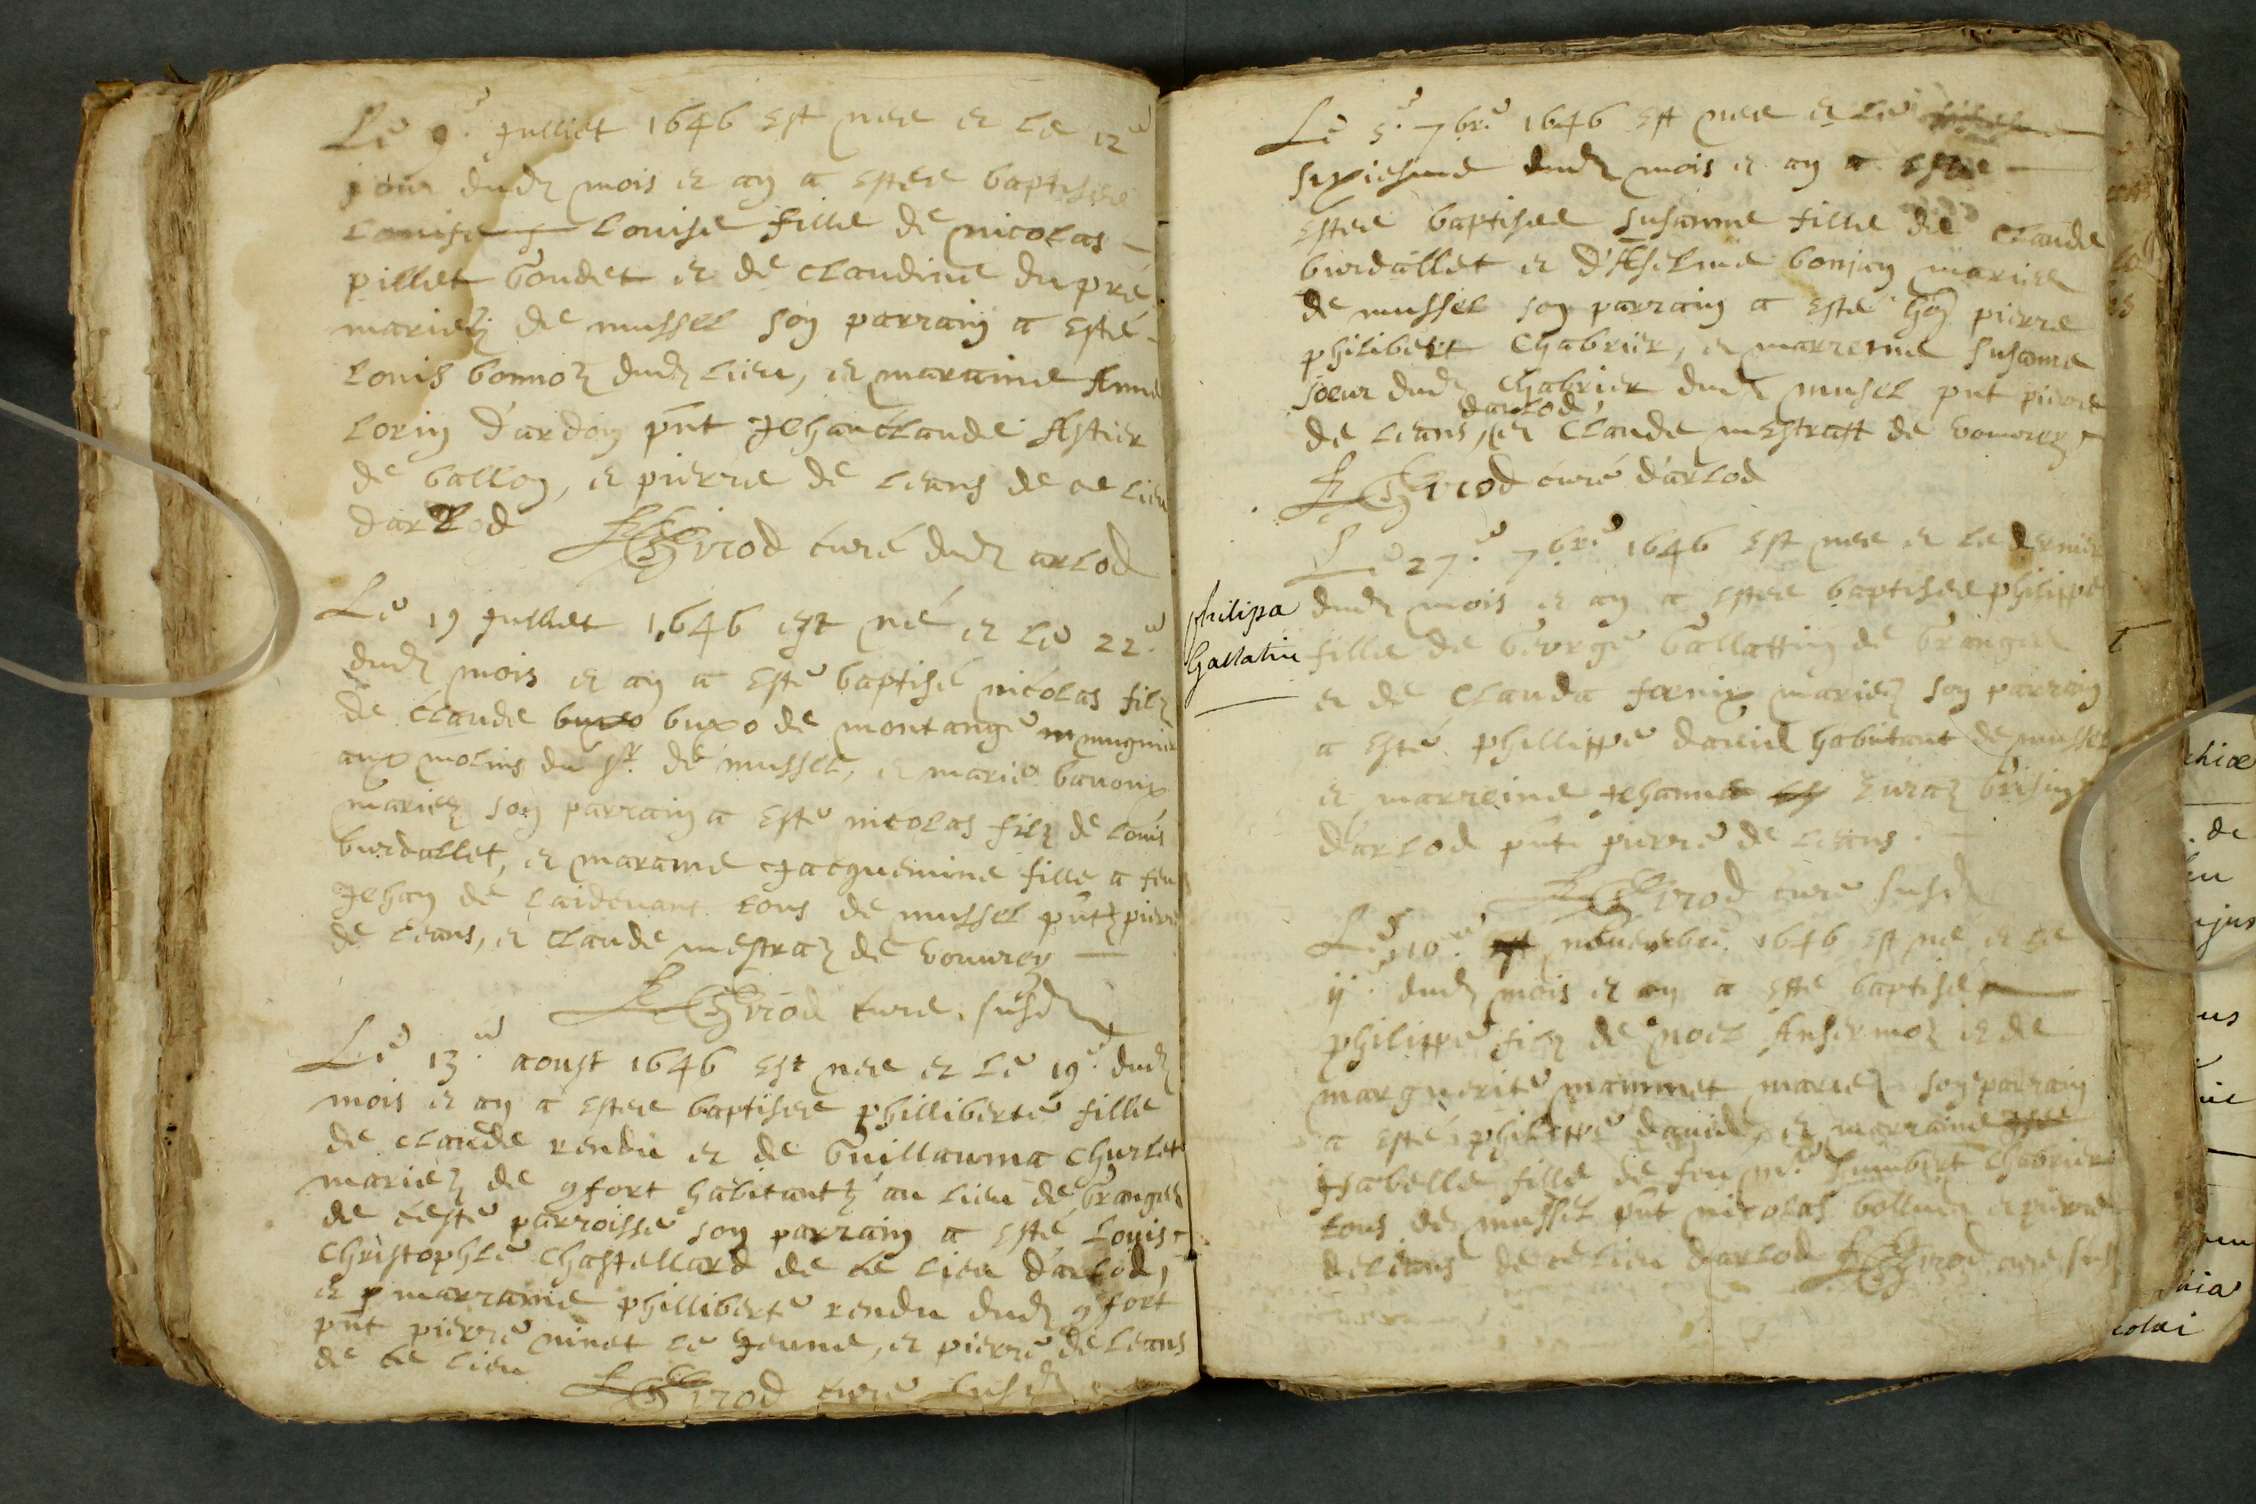 Le 9.e Julliet 1646 est nee et le 12e
jour dud mois et an a estee baptisee
Louise Louise fille de nicolas
pillet Goudet et de Claudine du pré
mariez de mussel son parrain a esté
Louis bonnoz dud lieu, et maraine Anne
Lorin d'ardon pnt Jehan Claude Astier
de ballon, et pierre de Leans de ce lieu
darlod Girod curé dud arlod
Le 19 Julliet 1646 est né et le 22.e
dud mois et an a esté baptisé nicolas filz
de Claude buxo de montange mugnier
aux molins du Sr. de mussel, et marie bauoux
mariez son parrain a esté nicolas filz de Louis
burdallet, et maraine Jacquemine fille a feu
Jehan de Laideuant tous de mussel pntz pierre
de Leans, et Claude mestraz de vouurey
Girod curé susd
Le 13.e aoust 1646 est nee et le 19.e dud
mois et an a estee baptisee phillberte fille
de claude rendu et de Guillauma Churlet
mariez de 9fort habitantz au lieu de Granges
de ceste parroisse son parrain a esté Louis
Christophle Chastellard de ce lieu d'arlod,
et marraine phillberte rendu dud 9fort
pnt pierre ninet le Jeune, et pierre de Leans
de ce lieu Girod curé susd
Le 5.e 7bre 1646 est nee et le
sixiesme dud mois et an a estee
estee baptisee Susanne fille de Claude
burdallet et d'Aselme bonjan mariee
de mussel son parrain a esté pierre
philibert Chabrier, et marreine Susanne
soeur dud Chabrier dud musel pnt pierre
darlod
de Leans, et Claude mestratt de vouurey
Girod curé d'arlod
Le 27.e 7bre 1646 est nee et le dernier
dud mois et an a estee baptisee philippe
philipa
Gallatin
fille de George Gallattin de Granges
et de Clauda fornix mariez son parrain
a esté phillippe dauid habitant de mussel
et marreine Jehanna
d'arlod pnt pierre de Leans.
Girod curé susd
Le 10.e nouembre 1646 est né et le
ij.e dud mois et an a esté baptisé
philippe filz de noel Ansermoz et de
marguerite mammet mariez son parrain
a esté philippe dauid, et marraine
Jsabelle fille de feu me. humbert Chabrier
tous de mussel pnt nicolas bolliet et pierre
de Leans de ce lieu darlod Girod curé susd